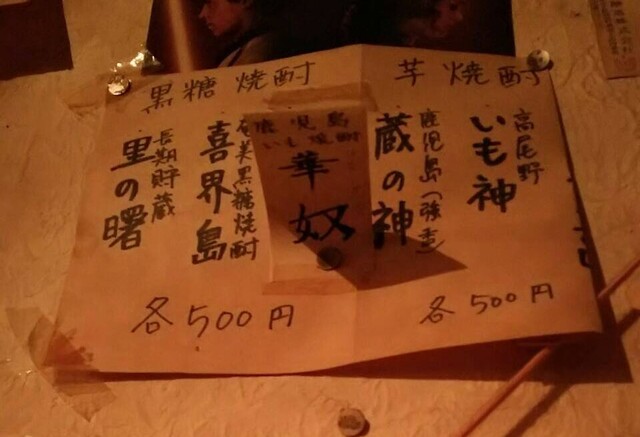 芋焼酎
高尾野
いも神
鹿児島(強重)
蔵の神
各500円
鹿児島
いも焼酎
華奴
黒糖焼酎
奄美黒糖焼酎
喜界島
長期貯蔵
里の曙
各500円